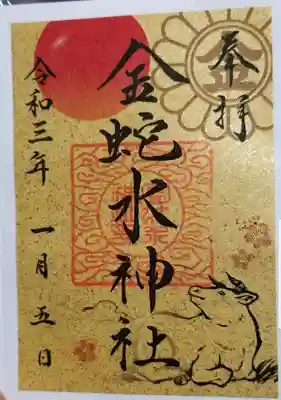 奉拝
金
金蛇水神社
令和三年 一月五日